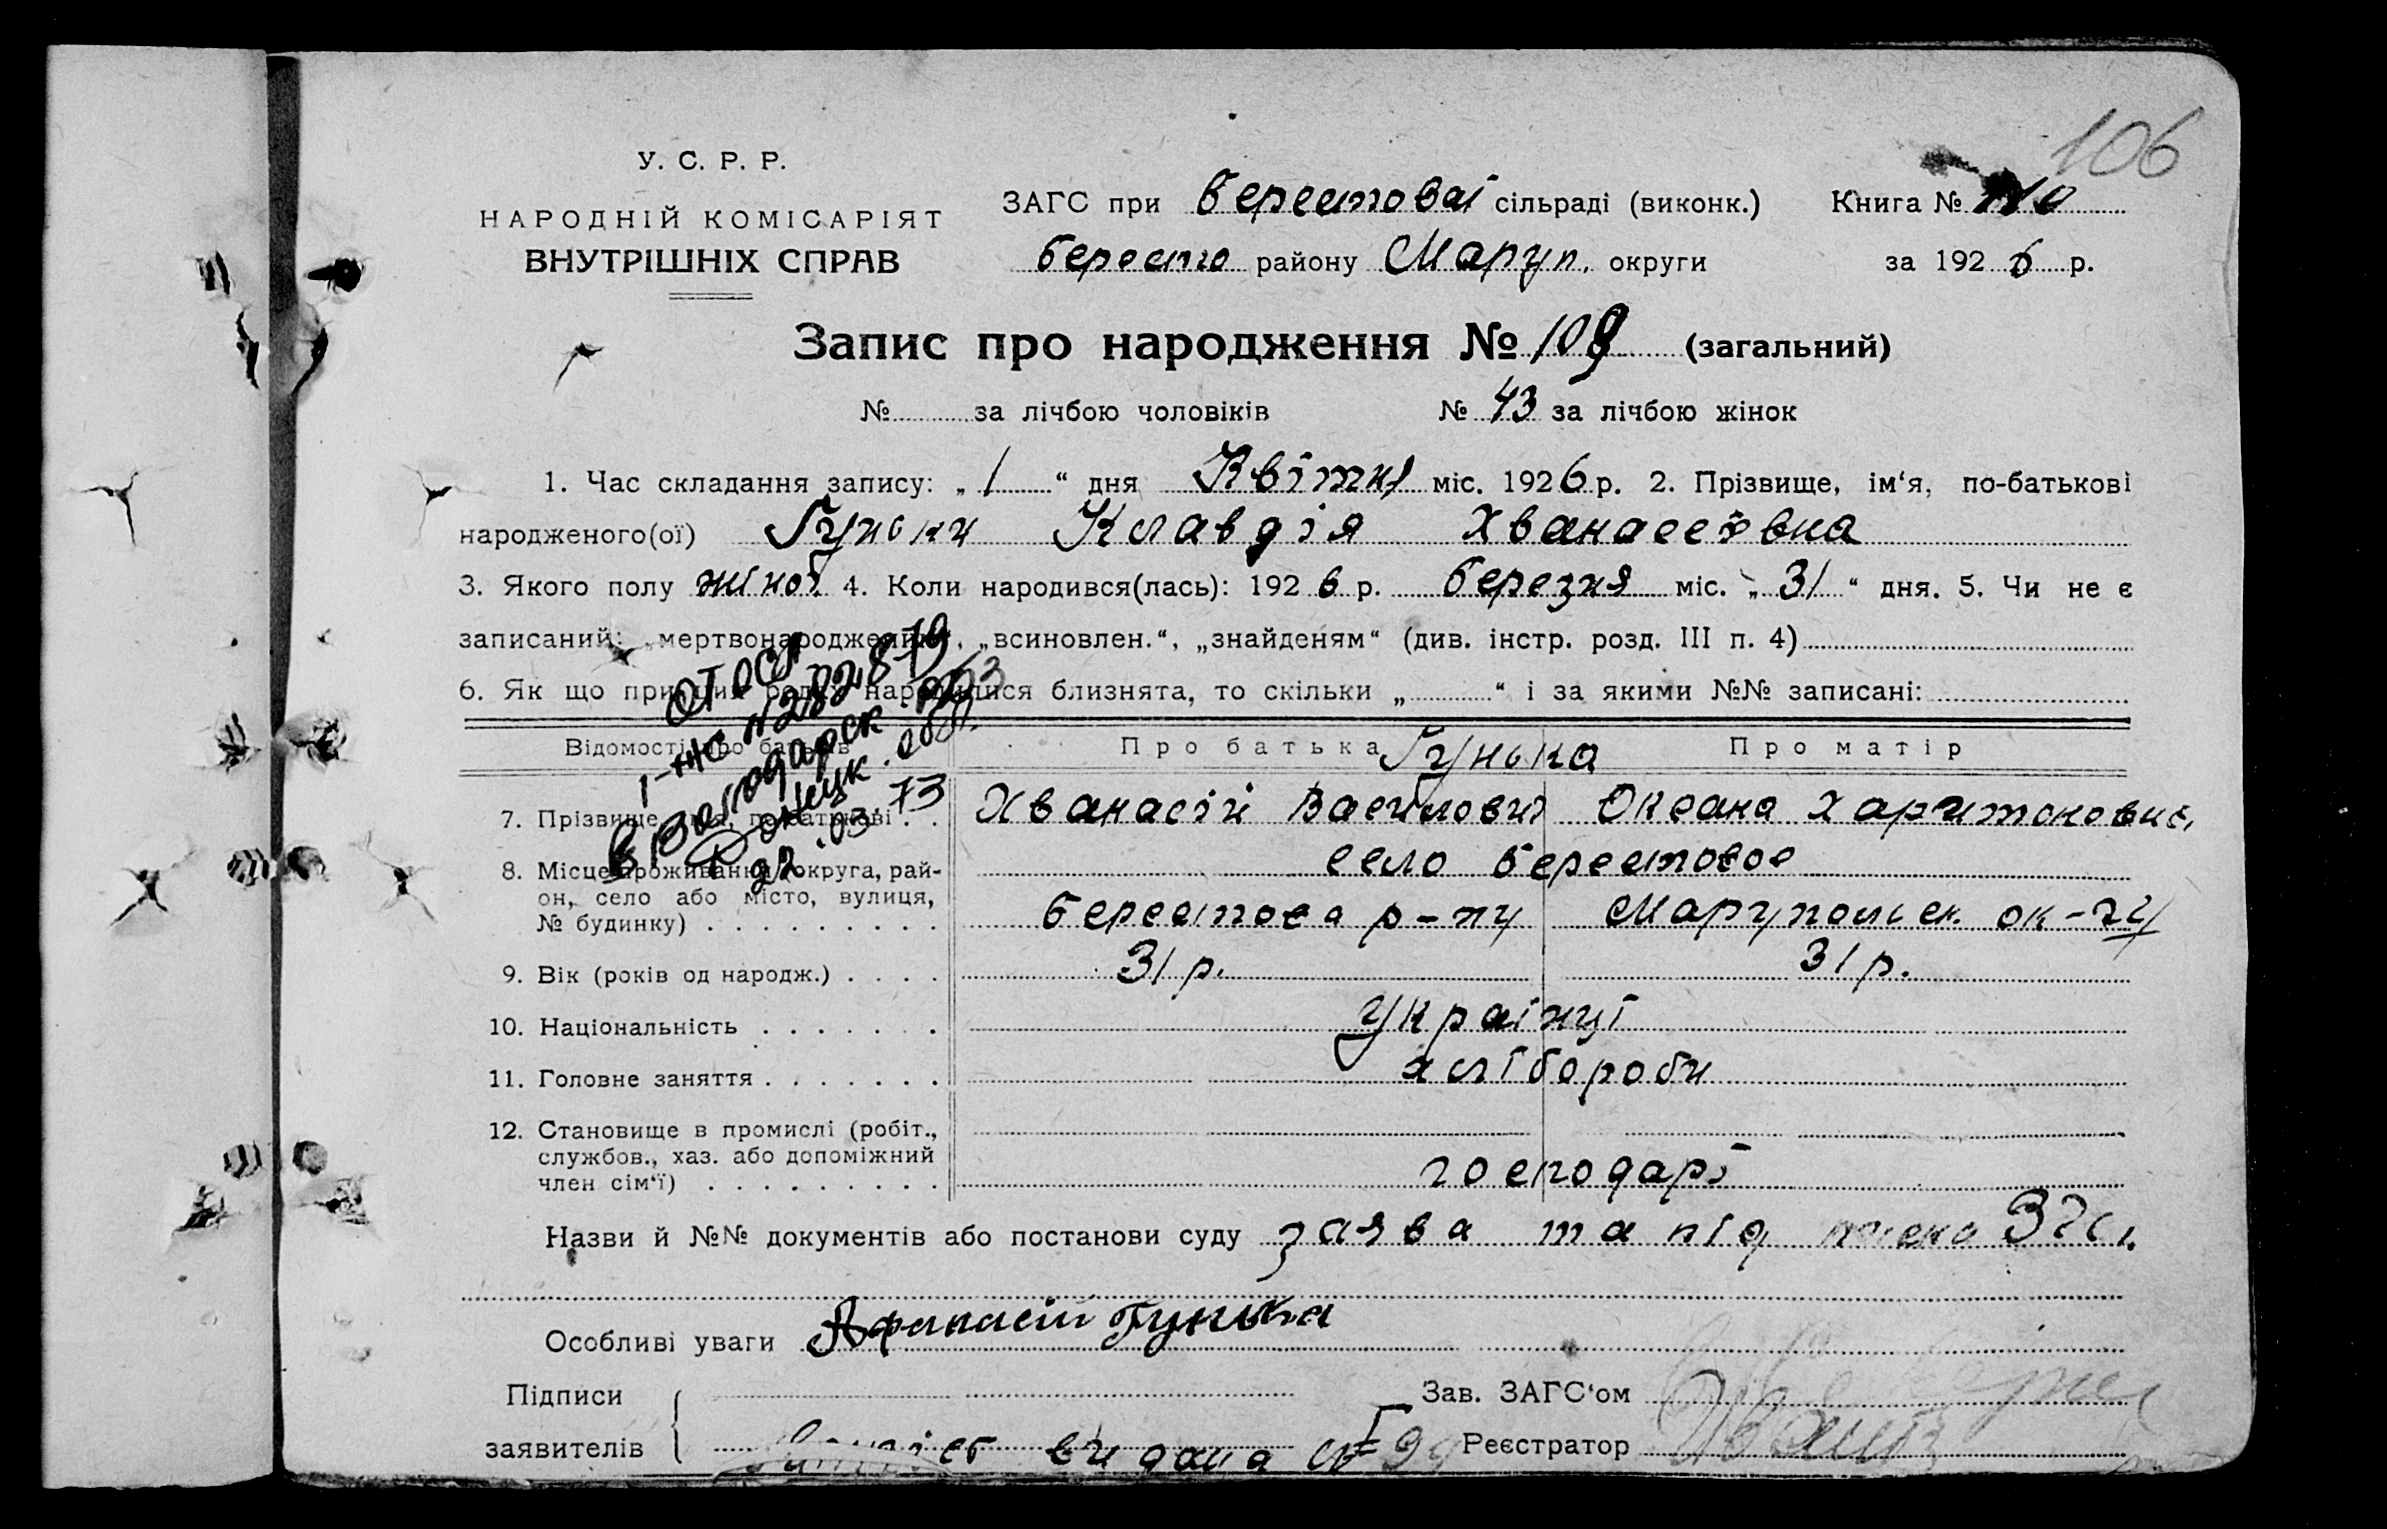 106
У. С. Р. Р.
НАРОДНІЙ КОМІСАРІЯТ
ВНУТРІШНІХ СПРАВ
ЗАГС при Берестоваї сільраді (виконк.) Книга №
Бересто району Маруп. округи за 1926 р.
Запис про народження № 109 (загальний)
№ за лічбою чоловіків № 43 за лічбою жінок
1. Час складання запису: „ 1 “ дня Квітня міс. 1926 р. 2. Прізвище, ім‘я, по-батькові
народженого(ої) Гуньки Клавдія Хванасеівна
3. Якого полу жіноі 4. Коли народився(лась): 1926 р. березня міс. „ 31 “ дня. 5. Чи не є
записаний: „мертвонароджений“, „всиновлен.“, „знайденям“ (див. інстр. розд. III п. 4)
6. Як що при народилися близнята, то скільки „ “ і за якими №№ записані:
Відомості про батьків Про батька Гунька Про матір
7. Прізвище, ім‘я, по-батькові . . Хванасій Васильович Оксана Харитоновна
8. Місце проживання (округа, рай- село Берестовое
он, село або місто, вулиця,
№ будинку) . . . . . . . . . Берестова р-ну Марупольск. ок-ги
9. Вік (років од народж.) . . . . 31 р. 31 р.
10. Національність . . . . . . . Украінці
11. Головне заняття . . . . . . . хлібороби
12. Становище в промислі (робіт.,
службов., хаз. або допоміжний
член сім‘ї) . . . . . . . . . господарі
Назви й №№ документів або постанови суду заява та під
Особливі уваги Афанасій Гунька
Підписи Зав. ЗАГС‘ом
заявителів видана № Реєстратор